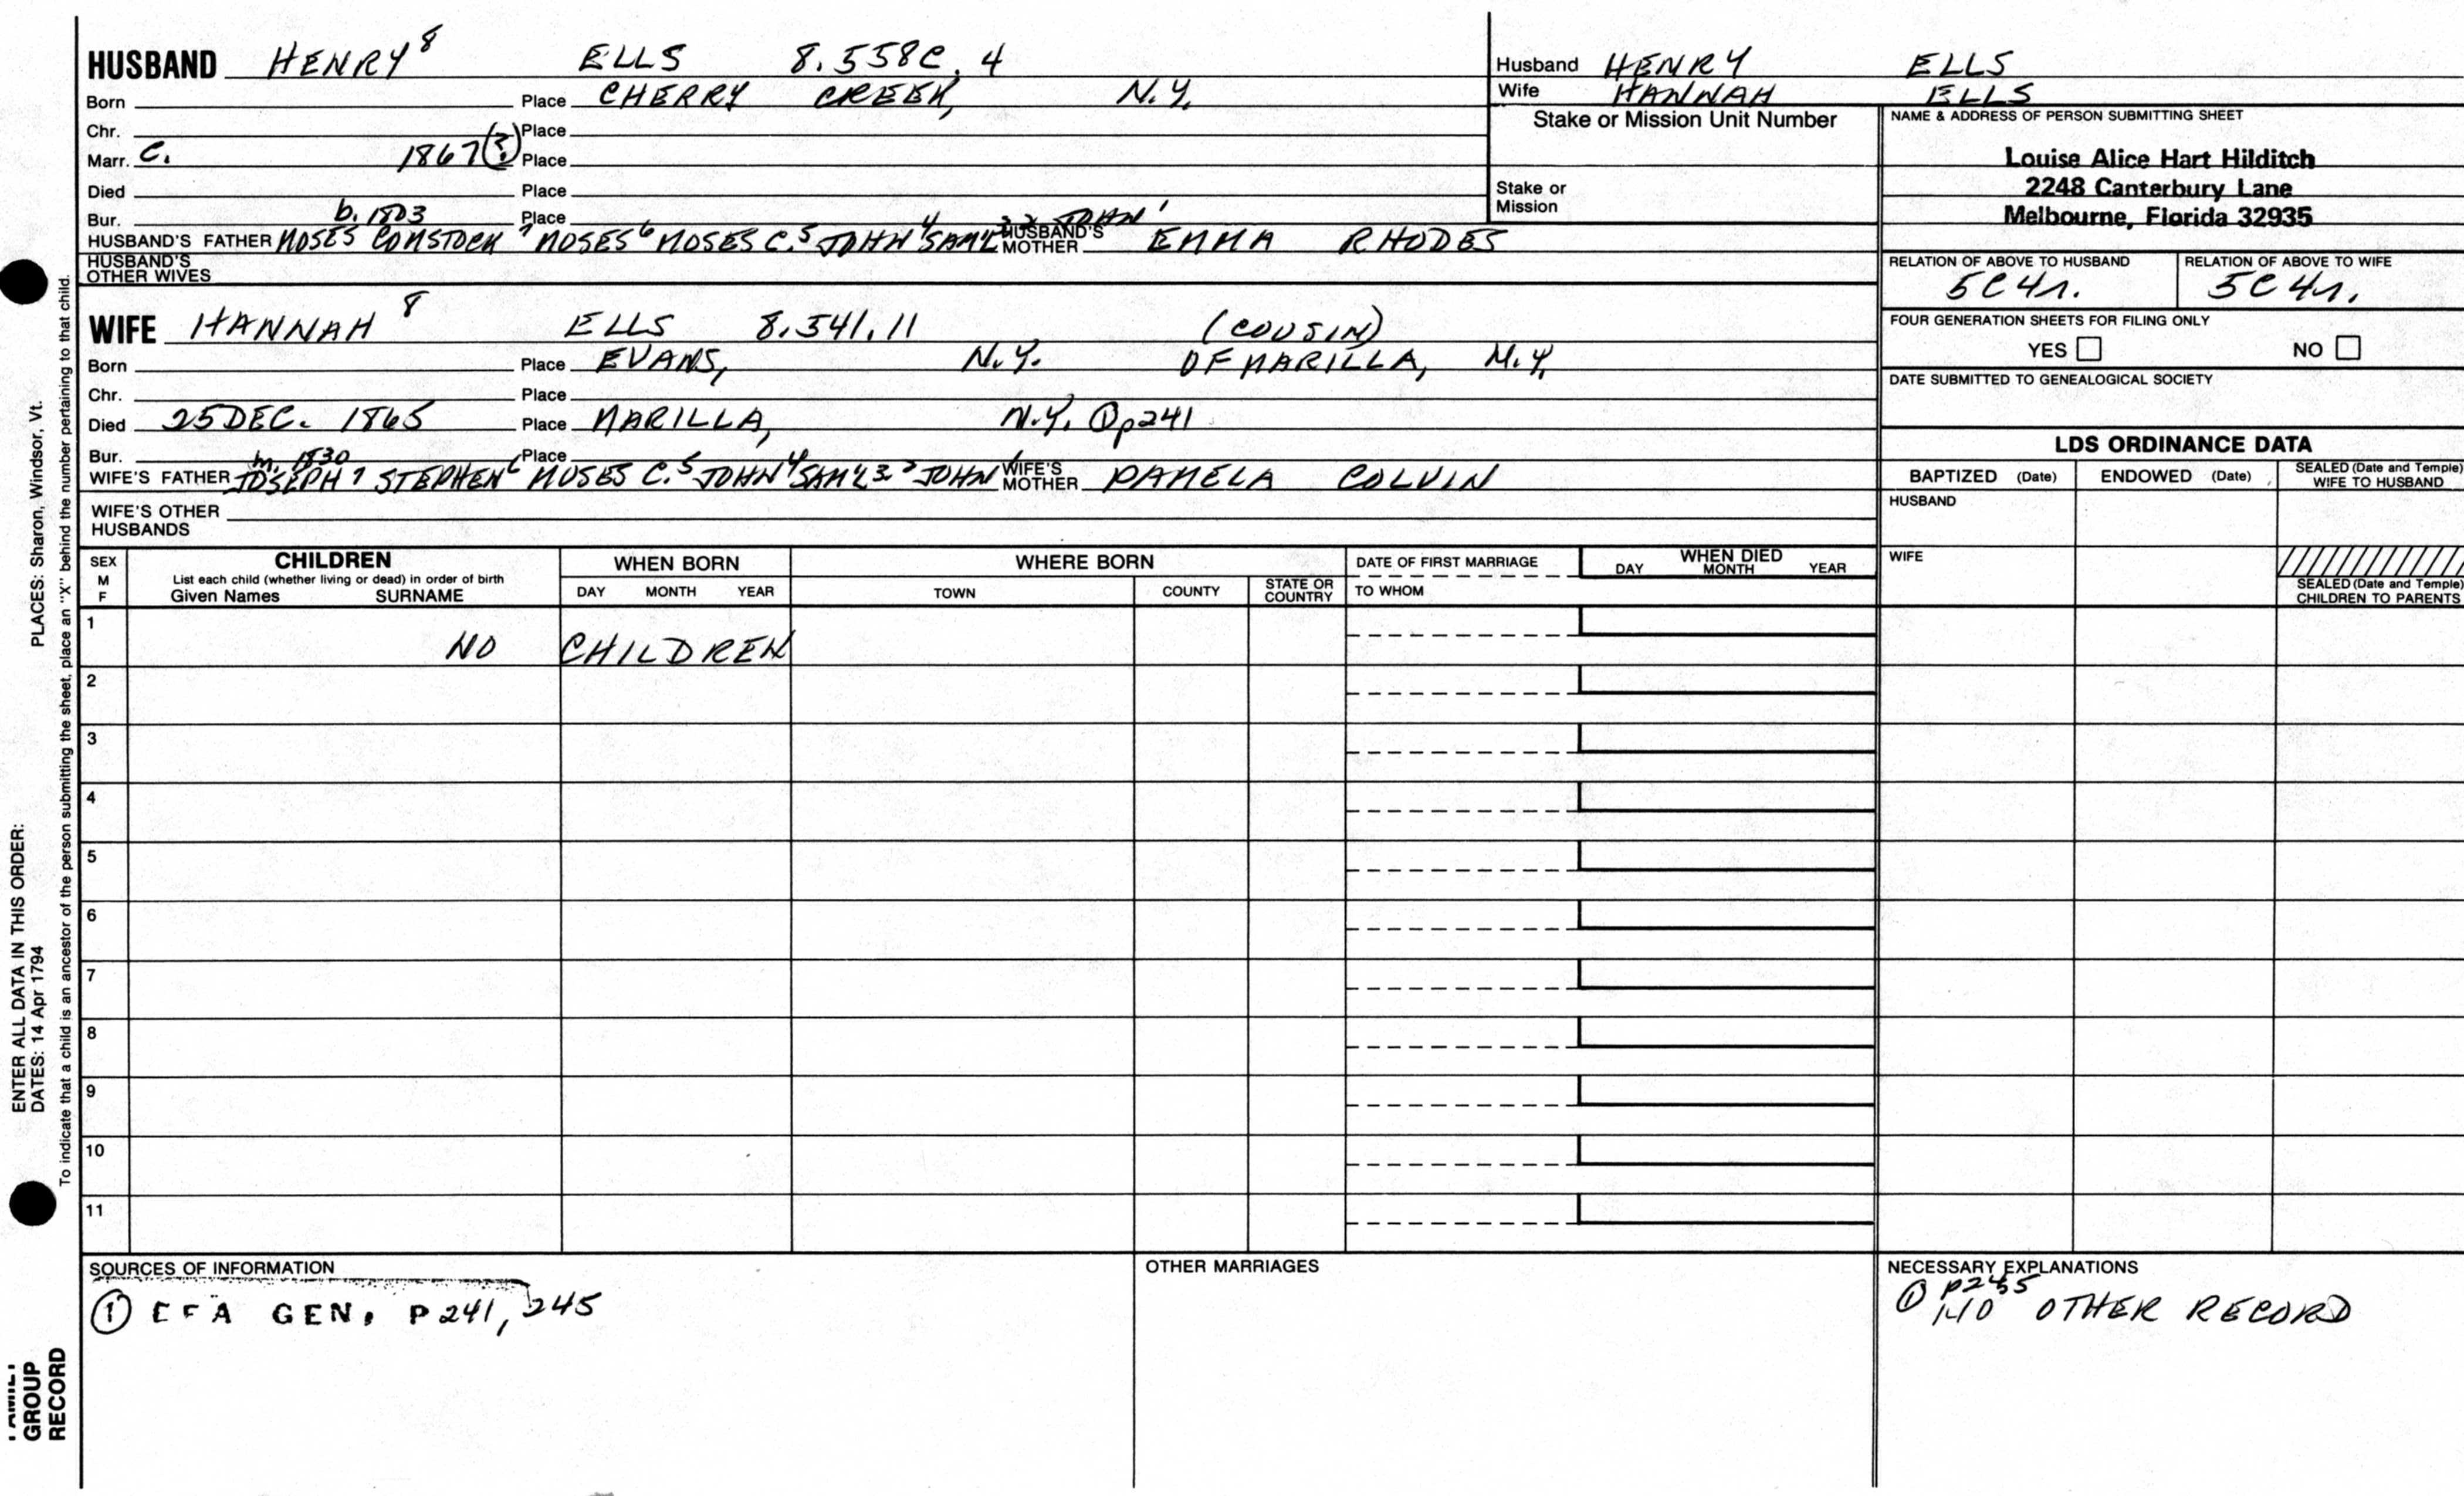 HUSBAND HENRY⁸ ELLS 8.558C.4
Born Place CHERRY CREEK, N.Y.
Chr. Place
Marr. C. 1867(?) Place
Died Place
Bur. b. 1803 Place
HUSBAND'S FATHER MOSES COMSTOCK⁷ MOSES⁶ MOSES C.⁵ JOHN⁴ SAM'L JOHN¹ HUSBAND'S MOTHER EMMA RHODES
HUSBAND'S OTHER WIVES
Husband HENRY ELLS
Wife HANNAH ELLS
Stake or Mission Unit Number
Stake or Mission
NAME & ADDRESS OF PERSON SUBMITTING SHEET
Louise Alice Hart Hilditch
2248 Canterbury Lane
Melbourne, Florida 32935
RELATION OF ABOVE TO HUSBAND RELATION OF ABOVE TO WIFE
5C4r. 5C4r.
FOUR GENERATION SHEETS FOR FILING ONLY
YES NO
DATE SUBMITTED TO GENEALOGICAL SOCIETY
WIFE HANNAH⁸ ELLS 8.541.11 (COUSIN)
Born Place EVANS, N.Y. OF MARILLA, N.Y.
Chr. Place
Died 25 DEC. 1865 Place MARILLA, N.Y. ①p241
Bur. m. 1830 Place
WIFE'S FATHER JOSEPH⁷ STEPHEN⁶ MOSES C.⁵ JOHN⁴ SAM'L JOHN¹ WIFE'S MOTHER PAMELA COLVIN
WIFE'S OTHER HUSBANDS
LDS ORDINANCE DATA
BAPTIZED (Date) ENDOWED (Date) SEALED (Date and Temple) WIFE TO HUSBAND
HUSBAND
WIFE
SEALED (Date and Temple) CHILDREN TO PARENTS
SEX M F
CHILDREN
List each child (whether living or dead) in order of birth
Given Names SURNAME
WHEN BORN
DAY MONTH YEAR
WHERE BORN
TOWN COUNTY STATE OR COUNTRY
DATE OF FIRST MARRIAGE
TO WHOM
WHEN DIED
DAY MONTH YEAR
1 NO CHILDREN
2
3
4
5
6
7
8
9
10
11
SOURCES OF INFORMATION
① GEN. P241, 245
OTHER MARRIAGES
NECESSARY EXPLANATIONS
① P245
NO OTHER RECORD
PLACES: Sharon, Windsor, Vt.
ENTER ALL DATA IN THIS ORDER:
DATES: 14 Apr 1794
To indicate that a child is an ancestor of the person submitting the sheet, place an "X" behind the number pertaining to that child.
FAMILY
GROUP
RECORD